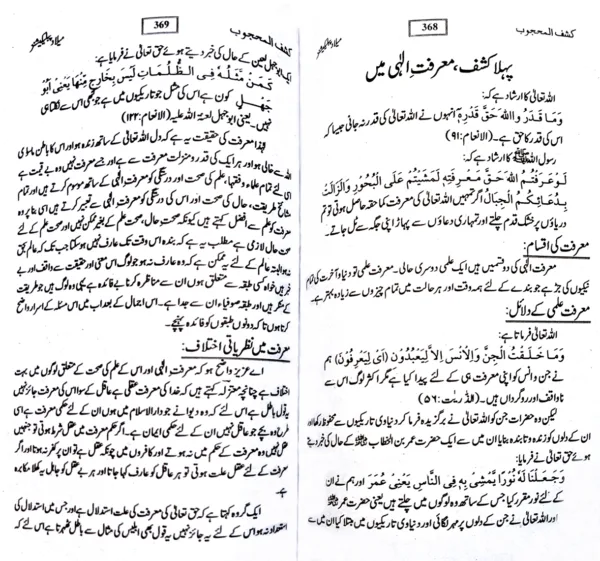 کشف المحجوب
368
میلاد پبلیکیشنز
پہلا کشف، معرفت الٰہی میں
اللہ تعالیٰ کا ارشاد ہے کہ:
وَمَا قَدَرُ وااللہَ حَقَّ قَدْرِہٖ انہوں نے اللہ تعالیٰ کی قدر نہ جانی جیسا کہ
اس کی قدر کا حق ہے۔ (الانعام:۹۱)
رسول اللہ ﷺ کا ارشاد ہے کہ:
لَوْعَرَفْتُمُ اللہَ حَقَّ مَعْرِفَتِہٖ لَمَشَیْتُمْ عَلَی الْبُحُوْرِ وَالزَّالَتْ
بِدُعَائِکُمُ الْجِبَالُ اگر تمہیں اللہ تعالیٰ کی معرفت کما حقہ حاصل ہوتی تو تم
دریاؤں پر خشک قدم چلتے اور تمہاری دعاؤں سے پہاڑ اپنی جگہ سے ٹل جاتے۔
معرفت کی اقسام:
معرفت الٰہی کی دو قسمیں ہیں ایک علمی دوسری حالی۔ معرفت علمی تو دنیا و آخرت کی تمام
نیکیوں کی جڑ ہے جو بندے کے لئے ہمہ وقت اور ہر حالت میں تمام چیزوں سے زیادہ بہتر ہے۔
معرفت علمی کے دلائل:
اللہ تعالیٰ فرماتا ہے:
وَمَا خَلَقْتُ الْجِنَّ وَالْاِنْسَ اِلَّا لِیَعْبُدُوْنِ (اَیْ لِیَعْرِفُوْنِ) ہم
نے جن و انس کو اپنی معرفت ہی کے لئے پیدا کیا ہے مگر اکثر لوگ اس سے
ناواقف اور روگرداں ہیں۔ (الذّٰریٰت:۵۶)
لیکن وہ حضرات جن کو اللہ تعالیٰ نے برگزیدہ فرما کر دنیاوی تاریکیوں سے محفوظ رکھا اور
ان کے دلوں کو زندہ و تابندہ بنایا ان میں سے ایک حضرت عمر بن الخطاب کے حال کی خبر دیتے
ہوئے حق تعالیٰ نے فرمایا:
وَجَعَلْنَا لَہٗ نُوْرًا یَّمْشِیْ بِہٖ فِی النَّاسِ یَعْنِیْ عُمَرَ اور ہم نے ان
کے لئے نور مقرر کیا جس کے ساتھ وہ لوگوں میں چلتے ہیں یعنی حضرت عمر
اور اللہ تعالیٰ نے جن کے دلوں پر مہر لگائی اور دنیاوی تاریکیوں میں مبتلا کیا ان میں سے
کشف المحجوب
369
میلاد پبلیکیشنز
ایک ابوجہل لعین کے حال کی خبر دیتے ہوئے حق تعالیٰ نے فرمایا ہے:
کَمَنْ مَّثَلُہٗ فِی الظُّلُمَاتِ لَیْسَ بِخَارِجٍ مِّنْھَا یَعْنِیْ اَبُوْ
جَھْلٍ کون ہے اس کی مثل جو تاریکیوں میں ہے جو کبھی اس سے نکلتا ہی
نہیں۔ یعنی ابوجہل لعنۃ اللہ علیہ۔ (الانعام:۱۲۲)
لہٰذا معرفت کی حقیقت یہ ہے کہ دل اللہ تعالیٰ کے ساتھ زندہ ہو اور اس کا باطن ماسوی
اللہ سے خالی ہو اور ہر ایک کی قدر و منزلت معرفت سے ہے اور جسے معرفت نہیں وہ بے قیمت ہے
اسی لئے تمام علماء و فقہاء، علم کی صحت اور درستگی کو معرفت الٰہی کے ساتھ موسوم کرتے ہیں اور تمام
مشائخ طریقت، حال کی صحت اور اس کی درستگی کو معرفت الٰہی سے تعبیر کرتے ہیں اسی بنا پر وہ
معرفت کو علم سے افضل کہتے ہیں کیونکہ صحت حال، صحت علم کے بغیر ممکن نہیں اور صحت علم کے لئے
صحت حال لازمی ہے مطلب یہ ہے کہ بندہ اس وقت تک عارف نہیں ہو سکتا جب تک کہ عالم بحق
نہ ہو البتہ عالم کے لئے یہ ممکن ہے کہ وہ عارف نہ ہو جو لوگ اس معنی اور حقیقت سے واقف اور بے
خبر ہیں خواہ کسی طبقہ سے متعلق ہوں ان سے مناظرہ کرنا بے فائدہ ہے یہی وہ لوگ ہیں جو طریقت
کے منکر ہیں اور طبقہ صوفیاء ان سے جدا ہے۔ اس اجمال کے بعد اب میں اس مسئلہ کے اسرار واضح
کرتا ہوں تاکہ دونوں طبقوں کو فائدہ پہنچے۔
معرفت میں نظریاتی اختلاف:
اے عزیز واضح ہو کہ معرفت الٰہی اور اس کے علم کی صحت کے متعلق لوگوں میں بہت
اختلاف ہے چنانچہ معتزلہ کہتے ہیں کہ خدا کی معرفت عقلی ہے عاقل کے سوا اس کی معرفت جائز نہیں
یہ قول باطل ہے اس لئے کہ وہ دیوانے جو دار الاسلام میں ہوں ان کے لئے حکم معرفت ہے اسی
طرح وہ بچے جو عاقل نہیں ان کے لئے حکمی ایمان ہے۔ اگر حکم معرفت میں عقل شرط ہوتی تو جنہیں
عقل نہیں وہ معرفت کے حکم میں نہ ہوتے اور کافروں میں چونکہ عقل ہے تو ان پر کفر نہ ہوتا اور اگر
معرفت کے لئے عقل علت ہوتی تو ہر عاقل کو عارف کہا جاتا اور ہر بے عقل کو جاہل یہ کھلا مکابرہ
ہے۔
ایک گروہ کہتا ہے کہ حق تعالیٰ کی معرفت کی علت استدلال ہے اور جس میں استدلال کی
استعداد نہ ہو اس کے لئے یہ جائز نہیں یہ قول بھی ابلیس کی مثال سے باطل ٹھہرتا ہے اس لئے کہ